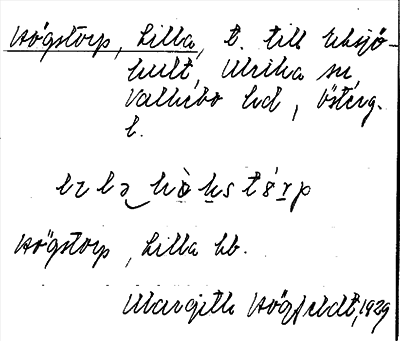 Högstorp, Lilla, t. till Eksjö-
hult, Ulrika sn,
Valkebo hd, Österg.
l.
Högstorp, Lilla hb.
Margith Högfeldt, 1929